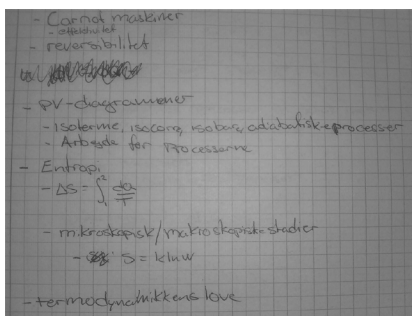 - Carnot maskiner
- effektivitet
- reversibilitet
- PV-diagrammer
- Isoterme, isocore, isobare, adiabatiske processer
- Arbejde for processerne
- Entropi
- ΔS = ∫₁² dQ/T
- mikroskopisk/makroskopisk stadier
- S = k ln W
- termodynamikkens love